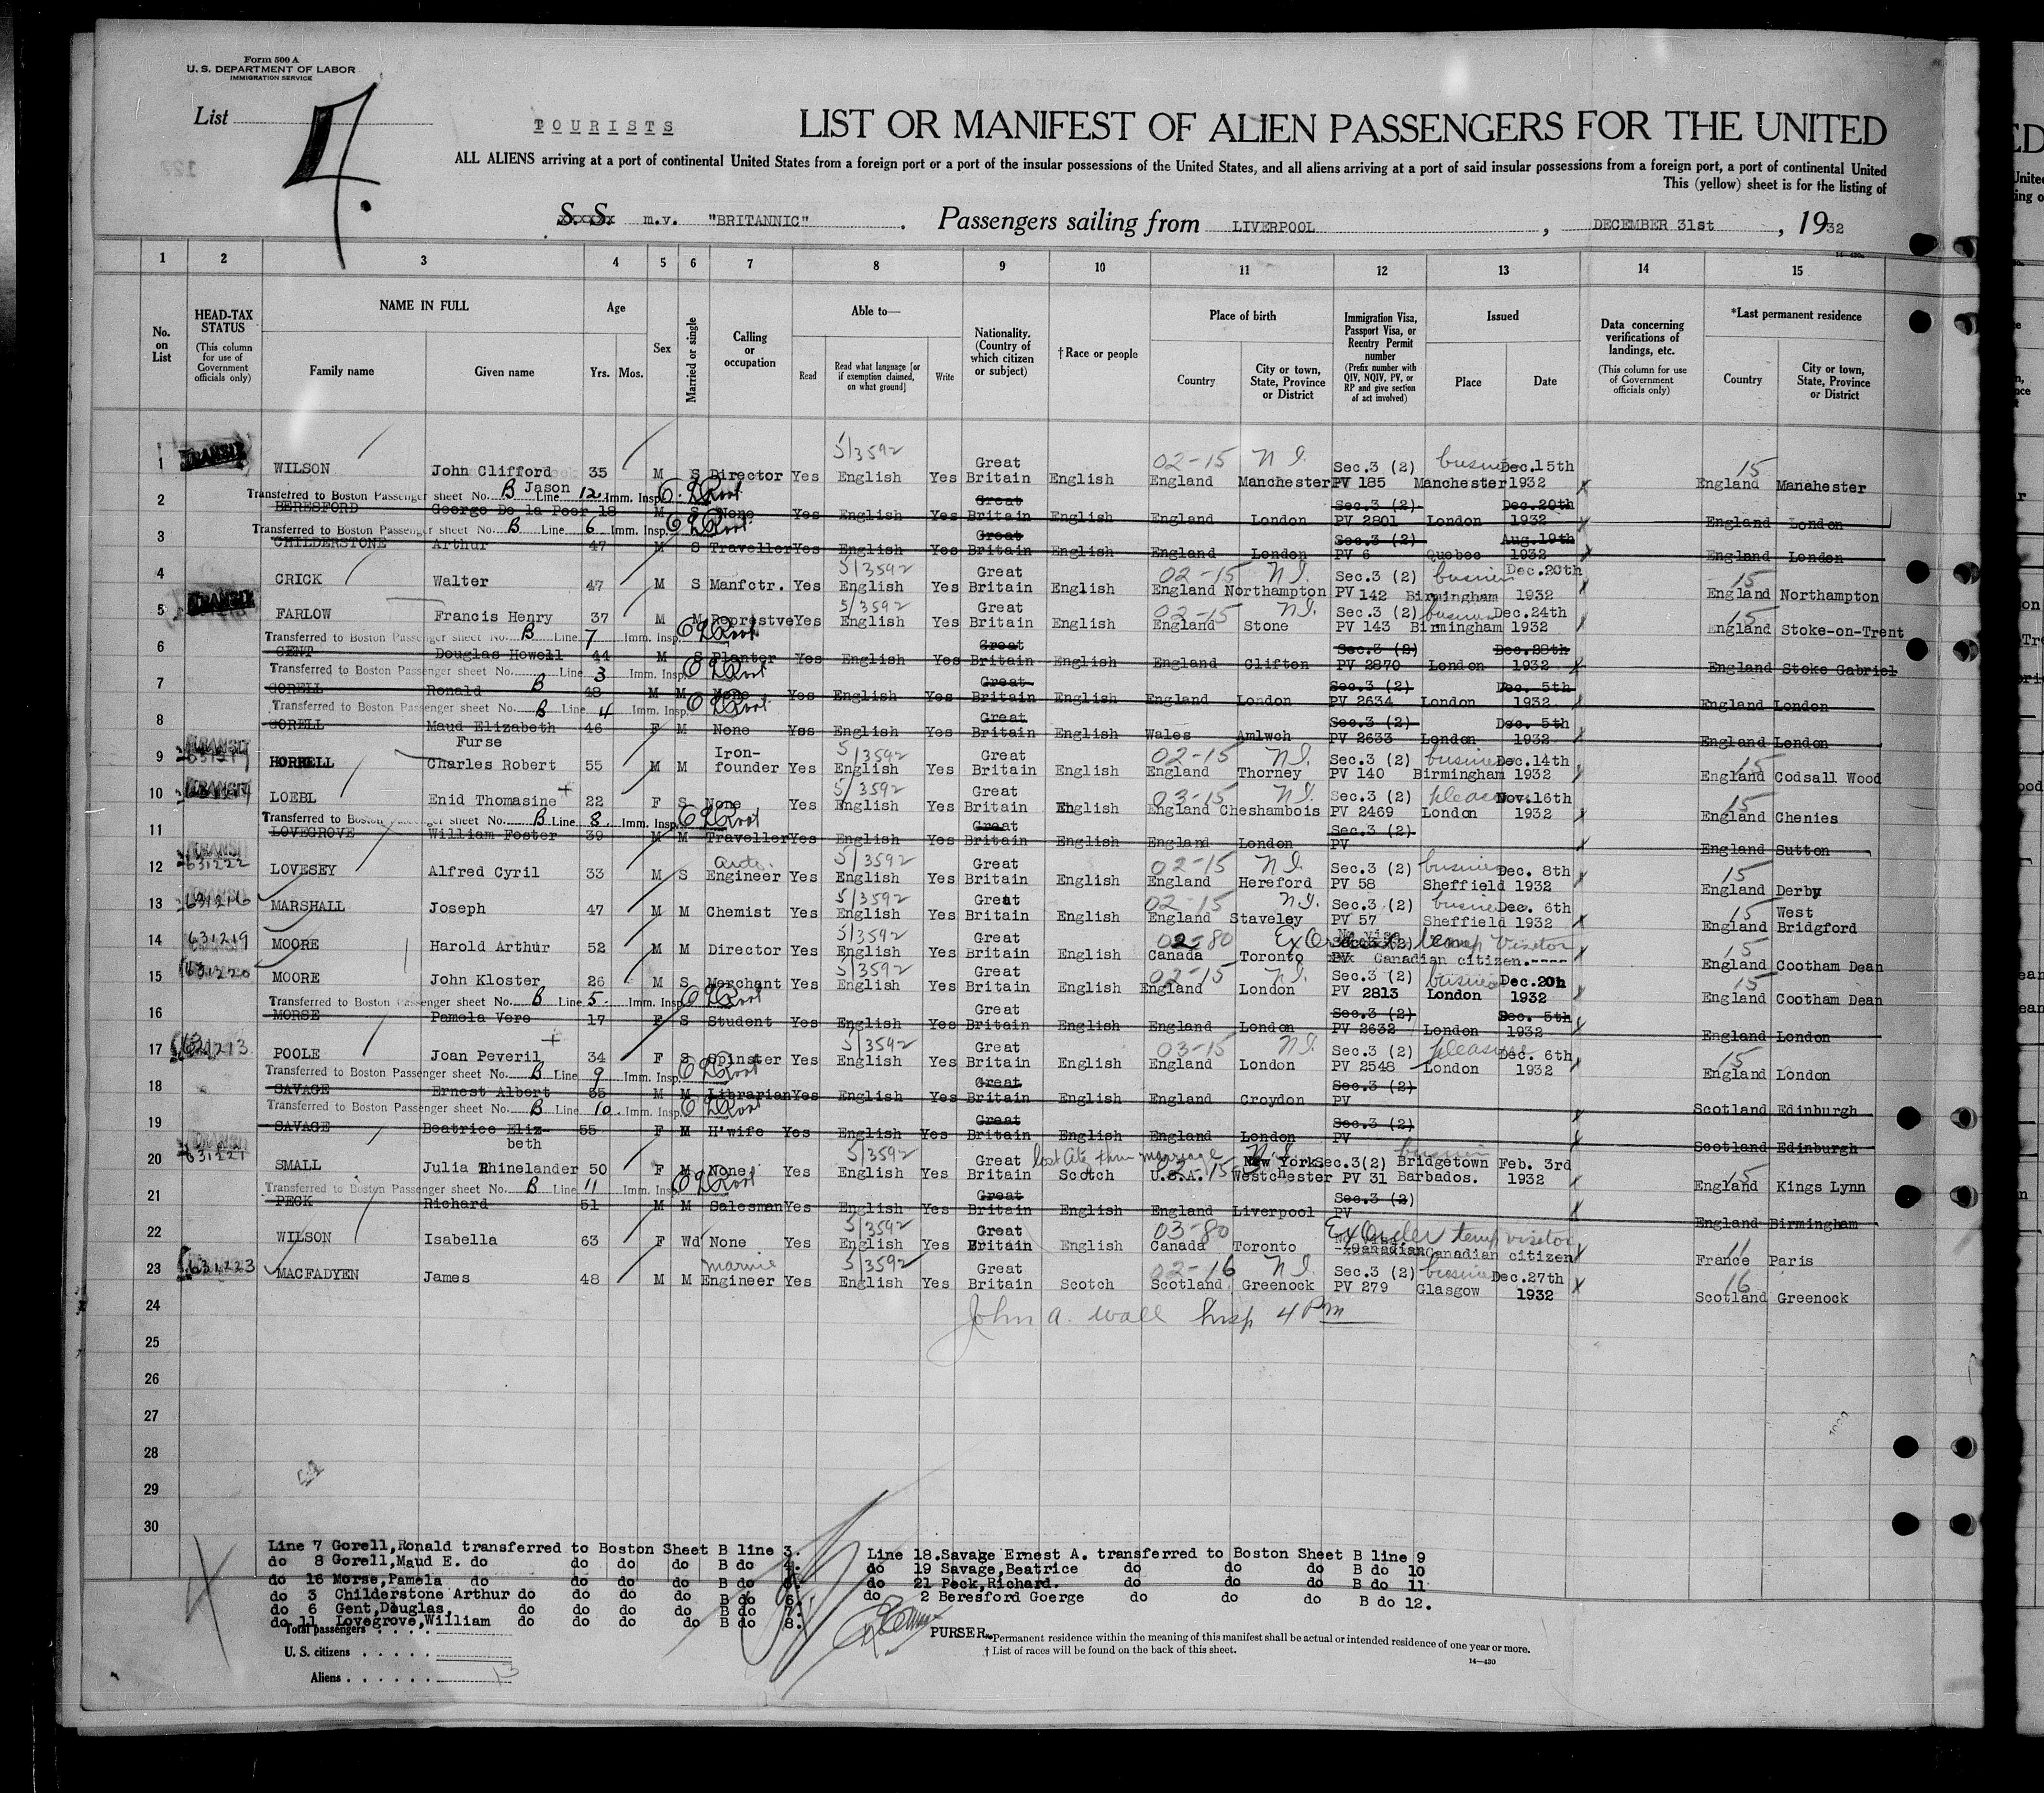 Form 500 A
U. S. DEPARTMENT OF LABOR
IMMIGRATION SERVICE
List 4.
TOURISTS
LIST OR MANIFEST OF ALIEN PASSENGERS FOR THE UNITED
ALL ALIENS arriving at a port of continental United States from a foreign port or a port of the insular possessions of the United States, and all aliens arriving at a port of said insular possessions from a foreign port, a port of continental United
This (yellow) sheet is for the listing of
S. S. m.v. "BRITANNIC". Passengers sailing from LIVERPOOL, DECEMBER 31st, 1932
1 2 3 4 5 6 7 8 9 10 11 12 13 14 15
No. on List
HEAD-TAX STATUS (This column for use of Government officials only)
NAME IN FULL Family name Given name
Age Yrs. Mos.
Sex
Married or single
Calling or occupation
Able to— Read Read what language [or if exemption claimed, on what ground] Write
Nationality. (Country of which citizen or subject)
†Race or people
Place of birth Country City or town, State, Province or District
Immigration Visa, Passport Visa, or Reentry Permit number (Prefix number with QIV, NQIV, PV, or RP and give section of act involved)
Issued Place Date
Data concerning verifications of landings, etc. (This column for use of Government officials only)
*Last permanent residence Country City or town, State, Province or District
1 TRANSIT WILSON John Clifford 35 M S Director Yes 5/3592 English Yes Great Britain English 02-15 N.I. England Manchester Sec.3 (2) PV 185 Manchester Dec.15th 1932 15 England Manchester
Jason
Transferred to Boston Passenger sheet No. B Line 12 Imm. Insp.
2 BERESFORD George De la Poer 18 M S None Yes English Yes Great Britain English England London Sec.3 (2) PV 2801 London Dec.20th 1932 England London
Transferred to Boston Passenger sheet No. B Line 6 Imm. Insp.
3 CHILDERSTONE Arthur 47 M S Traveller Yes English Yes Great Britain English England London Sec.3 (2) PV 6 Quebec Aug.19th 1932 England London
4 CRICK Walter 47 M S Manfctr. Yes 5/3592 English Yes Great Britain English 02-15 N.I. England Northampton Sec.3 (2) PV 142 Birmingham Dec.20th 1932 15 England Northampton
5 TRANSIT FARLOW Francis Henry 37 M M Represtve Yes 5/3592 English Yes Great Britain English 02-15 N.I. England Stone Sec.3 (2) PV 143 Birmingham Dec.24th 1932 15 England Stoke-on-Trent
Transferred to Boston Passenger sheet No. B Line 7 Imm. Insp.
6 GENT Douglas Howell 44 M S Planter Yes English Yes Great Britain English England Clifton Sec.3 (2) PV 2870 London Dec.28th 1932 England Stoke Gabriel
Transferred to Boston Passenger sheet No. B Line 3 Imm. Insp.
7 GORELL Ronald 48 M M None Yes English Yes Great Britain English England London Sec.3 (2) PV 2634 London Dec. 5th 1932 England London
Transferred to Boston Passenger sheet No. B Line 4 Imm. Insp.
8 GORELL Maud Elizabeth Furse 46 F M None Yes English Yes Great Britain English Wales Amlwch Sec.3 (2) PV 2633 London Dec. 5th 1932 England London
9 TRANSIT HORRELL Charles Robert 55 M M Iron-founder Yes 5/3592 English Yes Great Britain English 02-15 N.I. England Thorney Sec.3 (2) PV 140 Birmingham Dec.14th 1932 15 England Codsall Wood
10 TRANSIT LOEBL Enid Thomasine 22 F S None Yes 5/3592 English Yes Great Britain English 03-15 N.I. England Cheshambois Sec.3 (2) PV 2469 pleasure London Nov.16th 1932 15 England Chenies
Transferred to Boston Passenger sheet No. B Line 8 Imm. Insp.
11 LOVEGROVE William Foster 39 M M Traveller Yes English Yes Great Britain English England London Sec.3 (2) PV England Sutton
12 TRANSIT 631222 LOVESEY Alfred Cyril 33 M S auto. Engineer Yes 5/3592 English Yes Great Britain English 02-15 N.I. England Hereford Sec.3 (2) PV 58 Sheffield Dec. 8th 1932 15 England Derby
13 631216 MARSHALL Joseph 47 M M Chemist Yes 5/3592 English Yes Great Britain English 02-15 N.I. England Staveley Sec.3 (2) PV 57 Sheffield Dec. 6th 1932 15 England West Bridgford
14 631219 MOORE Harold Arthur 52 M M Director Yes 5/3592 English Yes Great Britain English 02-80 Canada Toronto Ex Order temp visitor No visa Sec.3 (2) PV Canadian citizen.---- 15 England Cootham Dean
15 631220 MOORE John Kloster 26 M S Merchant Yes 5/3592 English Yes Great Britain English 02-15 N.I. England London Sec.3 (2) PV 2813 London Dec.20h 1932 15 England Cootham Dean
Transferred to Boston Passenger sheet No. B Line 5 Imm. Insp.
16 MORSE Pamela Vere 17 F S Student Yes English Yes Great Britain English England London Sec.3 (2) PV 2632 London Dec. 5th 1932 England London
17 POOLE Joan Peveril 34 F S Spinster Yes 5/3592 English Yes Great Britain English 03-15 N.I. England London Sec.3 (2) PV 2548 pleasure London Dec. 6th 1932 15 England London
Transferred to Boston Passenger sheet No. B Line 9 Imm. Insp.
18 SAVAGE Ernest Albert 55 M M Librarian Yes English Yes Great Britain English England Croydon Sec.3 (2) PV Scotland Edinburgh
Transferred to Boston Passenger sheet No. B Line 10 Imm. Insp.
19 SAVAGE Beatrice Eliz-beth 55 F M H'wife Yes English Yes Great Britain English England London Sec.3 (2) PV Scotland Edinburgh
20 TRANSIT 631221 SMALL Julia Rhinelander 50 F M None Yes 5/3592 English Yes Great Britain Scotch lost citz thru marriage 02-15 U.S.A. New York Westchester Sec.3(2) PV 31 Bridgetown Barbados. Feb. 3rd 1932 15 England Kings Lynn
Transferred to Boston Passenger sheet No. B Line 11 Imm. Insp.
21 PECK Richard 51 M M Salesman Yes English Yes Great Britain English England Liverpool Sec.3 (2) PV England Birmingham
22 WILSON Isabella 63 F Wd None Yes 5/3592 English Yes Great Britain English 03-80 Canada Toronto Ex Order temp visitor No Visa Canadian citizen 11 France Paris
23 631223 MACFADYEN James 48 M M marine Engineer Yes 5/3592 English Yes Great Britain Scotch 02-16 N.I. Scotland Greenock Sec.3 (2) PV 279 Glasgow Dec.27th 1932 16 Scotland Greenock
24 John A. Wall Insp 4 Pm
25
26
27
28
29
30
Line 7 Gorell,Ronald transferred to Boston Sheet B line 3.
do 8 Gorell,Maud E. do do do do B do 4.
do 16 Morse,Pamela do do do do B do 5.
do 3 Childerstone Arthur do do do do B do 6.
do 6 Gent,Douglas, do do do do B do 7.
do 11 Lovegrove,William do do do do B do 8.
Line 18.Savage Ernest A. transferred to Boston Sheet B line 9
do 19 Savage,Beatrice do do do B do 10
do 21 Peck,Richard. do do do B do 11
do 2 Beresford Goerge do do do B do 12.
PURSER.
Total passengers . . . .
U. S. citizens . . . . .
Aliens . . . . . . 13
*Permanent residence within the meaning of this manifest shall be actual or intended residence of one year or more.
† List of races will be found on the back of this sheet.
14—430